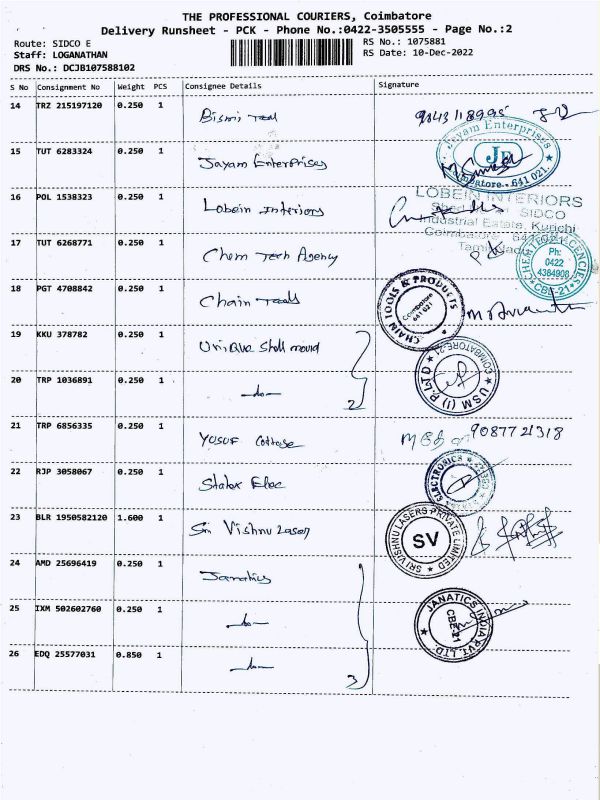 THE PROFESSIONAL COURIERS, Coimbatore
Delivery Runsheet - PCK - Phone No.:0422-3505555 - Page No.:2
Route: SIDCO E
RS No.: 1075881
Staff: LOGANATHAN
RS Date: 10-Dec-2022
DRS No.: DCJB107588102
S No Consignment No Weight PCS Consignee Details Signature
14 TRZ 215197120 0.250 1
Bismi Tool
15 TUT 6283324 0.250 1
Jayam Enterprises
Jayam Enterprises
JE
Coimbatore - 641 021.
16 POL 1538323 0.250 1
Lobein Interiors
LOBEIN INTERIORS
SIDCO
Industrial Estate, Kurichi
Coimbatore
Tamilnadu
17 TUT 6268771 0.250 1
Chem Tech Agency
CHEM TECH AGENCIES
Ph:
0422
4384908
CBE-21
18 PGT 4708842 0.250 1
Chain Tools
CHAIN TOOLS & PRODUCTS
Coimbatore
641 021
19 KKU 378782 0.250 1
Unique Shell mould
20 TRP 1036891 0.250 1
-do-
2
USM (I) P.LTD
COIMBATORE-21
21 TRP 6856335 0.250 1
YUSUF Cottage
9087721318
22 RJP 3058067 0.250 1
Elec
ELECTRONICS
23 BLR 1950582120 1.600 1
Sri Vishnu Laser
SRI VISHNU LASERS PRIVATE LIMITED
SV
24 AMD 25696419 0.250 1
Janatics
25 IXM 502602760 0.250 1
-do-
JANATICS INDIA PVT. LTD.
CBE-21
26 EDQ 25577031 0.850 1
-do-
3